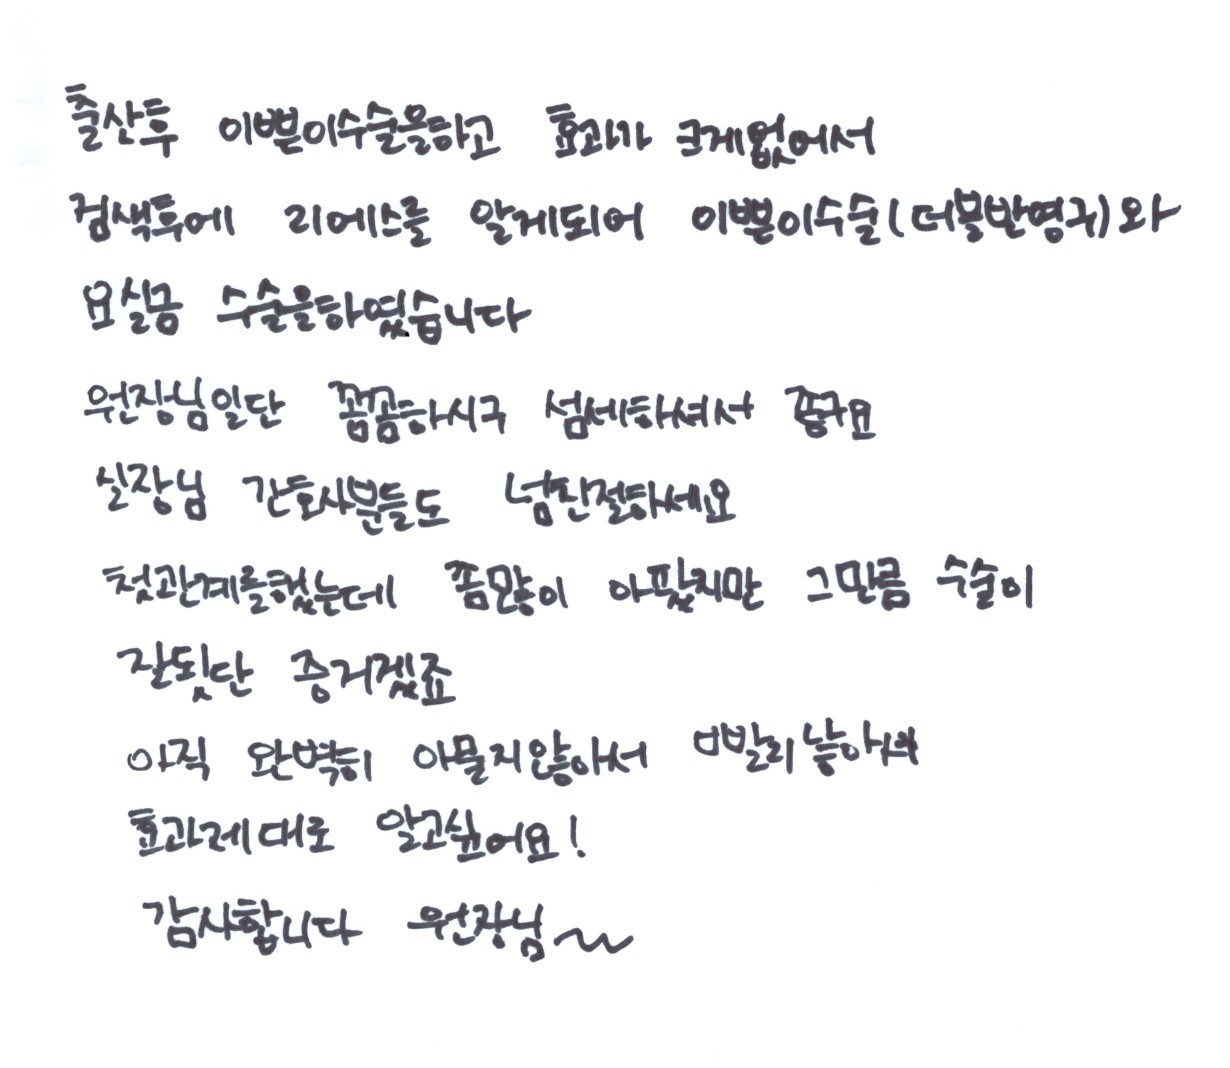 출산후 이쁜이수술을하고 효과가 크게없어서
검색후에 리에스를 알게되어 이쁜이수술(더블반영구)와
요실금 수술을하였습니다
원장님일단 꼼꼼하시구 섬세하셔서 좋구요
실장님 간호사분들도 넘친절하세요
첫관계를했는데 쫌많이 아팠지만 그만큼 수술이
잘됫단 증거겠죠
아직 완벽히 아물지않아서 빨리낳아서
효과제대로 알고싶어요!
감사합니다 원장님~